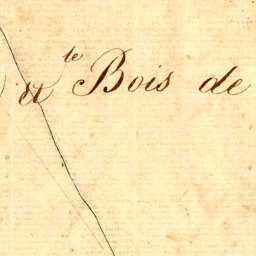 et le Bois de